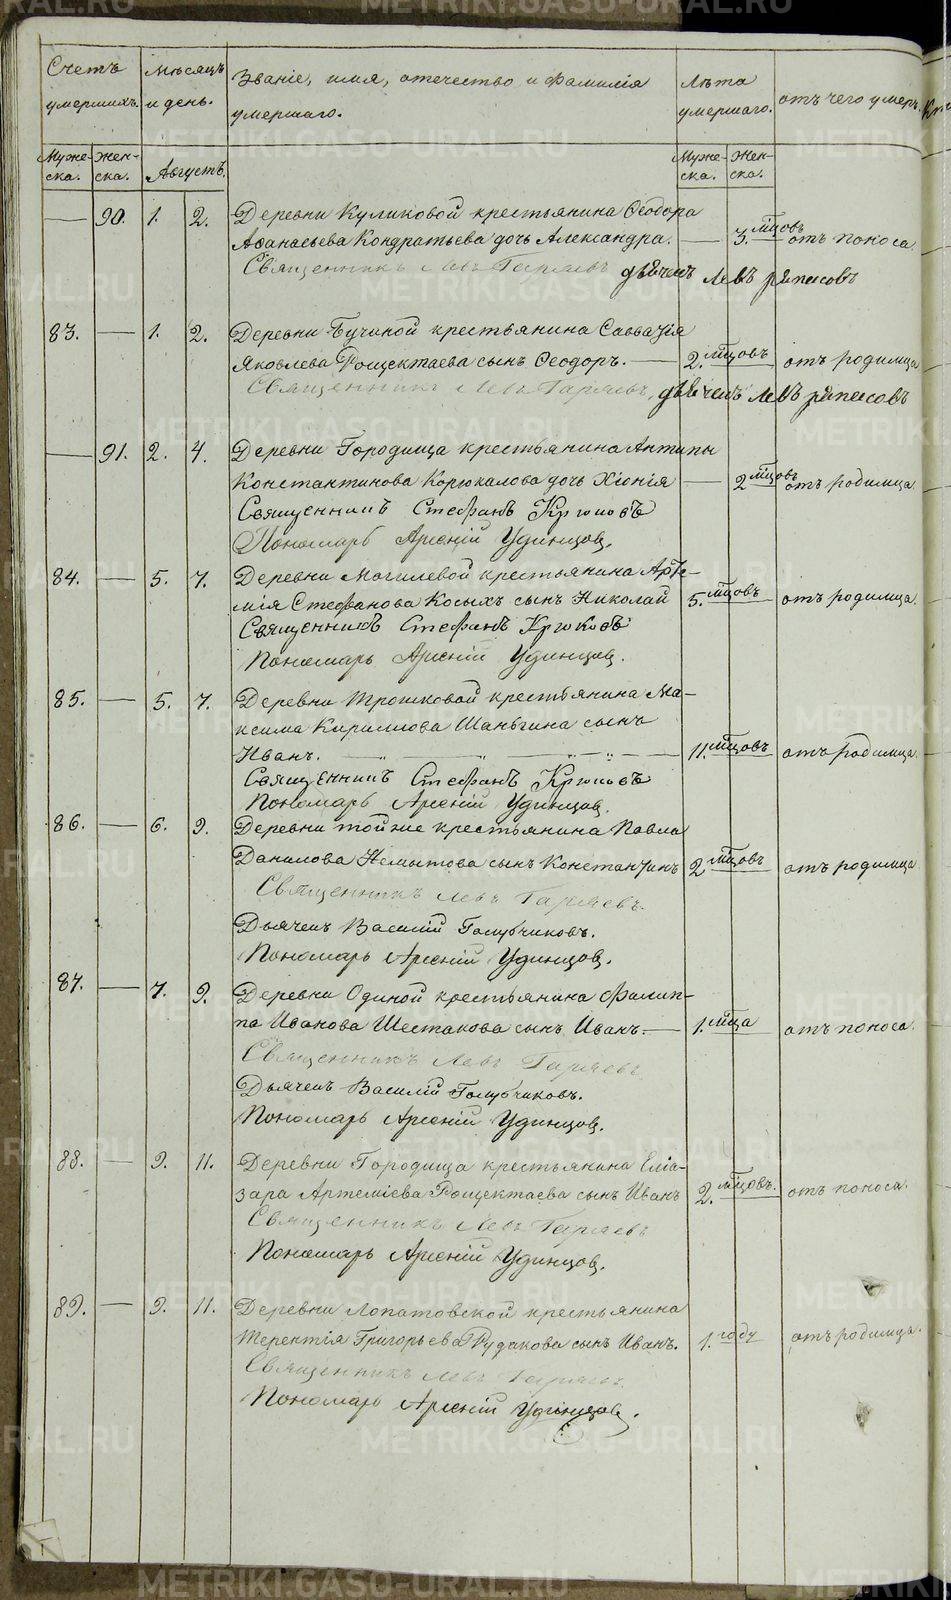 Счетъ умершихъ. Мѣсяцъ и день. Званіе, имя, отечество и фамилія умершаго. Лѣта умершаго. отъ чего умеръ.
Муже-ска. Жен-ска. Августъ. Муже-ска. Жен-ска.
— 90. 1. 2. Деревни Куликовой крестьянина Ѳеодора
Аѳанасьева Кондратьева дочь Александра. — 3. мцовъ отъ поноса.
Священникъ Левъ Гаряевъ дьячекъ Левъ
83. — 1. 2. Деревни Бучиной крестьянина Савватія
Яковлева Рощектаева сынъ Ѳеодоръ. — 2. мцовъ отъ родимца
Священникъ Левъ Гаряевъ, дьячекъ Левъ
— 91. 2. 4. Деревни Городища крестьянина Антипы
Константинова Корюкалова дочь Хіонія — 2 мцовъ отъ родимца.
Священникъ Стефанъ Крюковъ
Пономарь Арсеній Удинцов.
84. — 5. 7. Деревни Могилевой крестьянина Арте-
мія Стефанова Косыхъ сынъ Николай 5. мцовъ отъ родимца.
Священникъ Стефанъ Крюковъ
Пономарь Арсеній Удинцов.
85. — 5. 7. Деревни Трошковой крестьянина Ма-
ксима Кириллова Шаньгина сынъ
Иванъ. — 11. мцовъ отъ родимца.
Священникъ Стефанъ Крюковъ
Пономарь Арсеній Удинцов.
86. — 6. 9. Деревни тойже крестьянина Павла
Данилова Немытова сынъ Константинъ 2 мцовъ отъ родимца
Священникъ Левъ Гаряевъ.
Дьячекъ Василій Голубчиковъ.
Пономарь Арсеній Удинцов.
87. — 7. 9. Деревни Одиной крестьянина Филип-
па Иванова Шестакова сынъ Иванъ. — 1. мца отъ поноса.
Священникъ Левъ Гаряевъ
Дьячекъ Василій Голубчиковъ.
Пономарь Арсеній Удинцов.
88. — 9. 11. Деревни Городища крестьянина Еліа-
зара Артеміева Рощектаева сынъ Иванъ 2. мцовъ. отъ поноса.
Священникъ Левъ Гаряевъ
Пономарь Арсеній Удинцов.
89. — 9. 11. Деревни Лопатовской крестьянина
Терентія Григорьева Рудакова сынъ Иванъ. 1. году отъ родимца.
Священникъ Левъ Гаряевъ
Пономарь Арсеній Удинцов.
METRIKI.GASO-URAL.RU